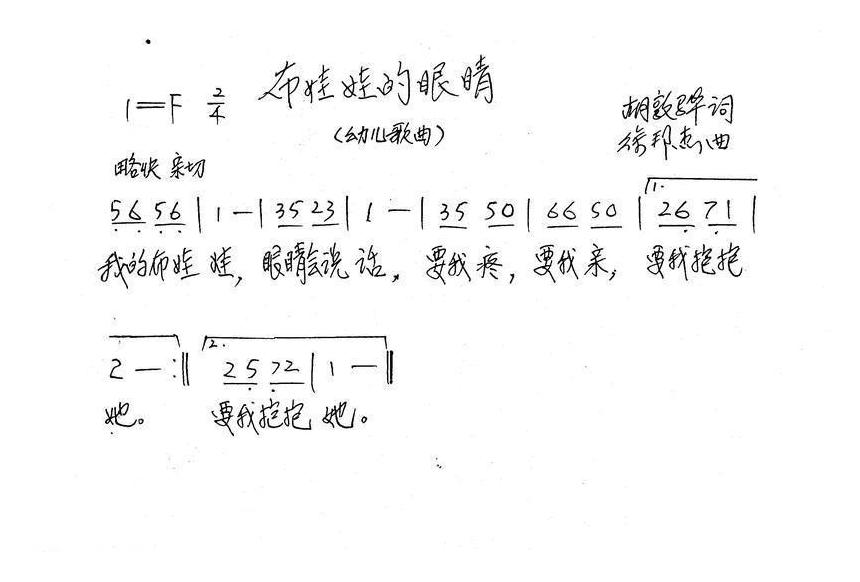 布娃娃的眼睛
1=F 2/4
(幼儿歌曲)
胡敦骅词
徐邦杰曲
略快 亲切
56 56 | 1 - | 35 23 | 1 - | 35 50 | 66 50 | 1. 26 71 |
我的布娃娃,眼睛会说话,要我疼,要我亲,要我抱抱
2 - :‖ 2. 25 72 | 1 - ‖
她。 要我抱抱她。